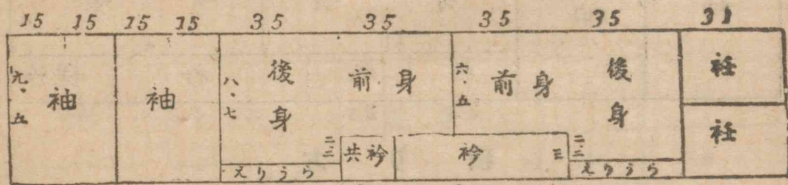 15 15 15 15 35 35 35 35 31
九・五
袖
袖
八・七
後身
前身
六・五
前身
後身
衽
衽
二・三
共衿
衿
三
二・三
えりうら
えりうら